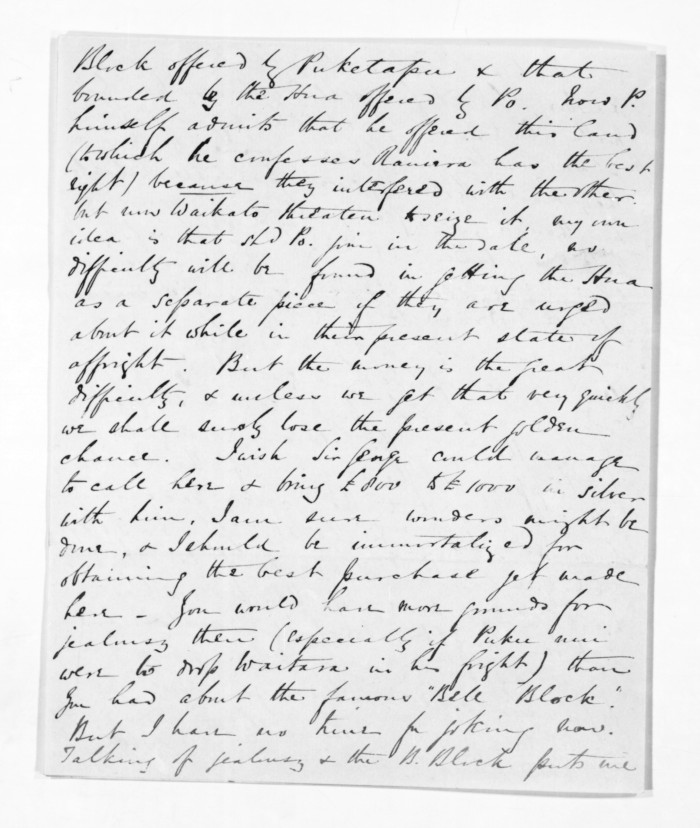 Block offered by Puketapu & that
bounded by the Hua offered by Po. Now P.
himself admits that he offered this land
(to which he confesses Raniera has the best
right) because they interfered with the other
but now Waikato threaten to seize it, my own
idea is that shd Po. join in the sale, no
difficulty will be found in getting the Hua
as a separate piece if they are urged
about it while in their present state of
affright. But the money is the great
difficulty, & unless we get that very quickly
we shall surely lose the present golden
chance. I wish Sir George could manage
to call here & bring £800 to £1000 in silver
with him, I am sure wonders might be
done, & I should be immortalized for
obtaining the best purchase yet made
here – You would have more grounds for
jealousy then (especially if Puku nui
were to drop Waitara in his fright) than
you had about the famous "Bell Block".
But I have no time for joking now.
Talking of jealousy & the B. Block puts me